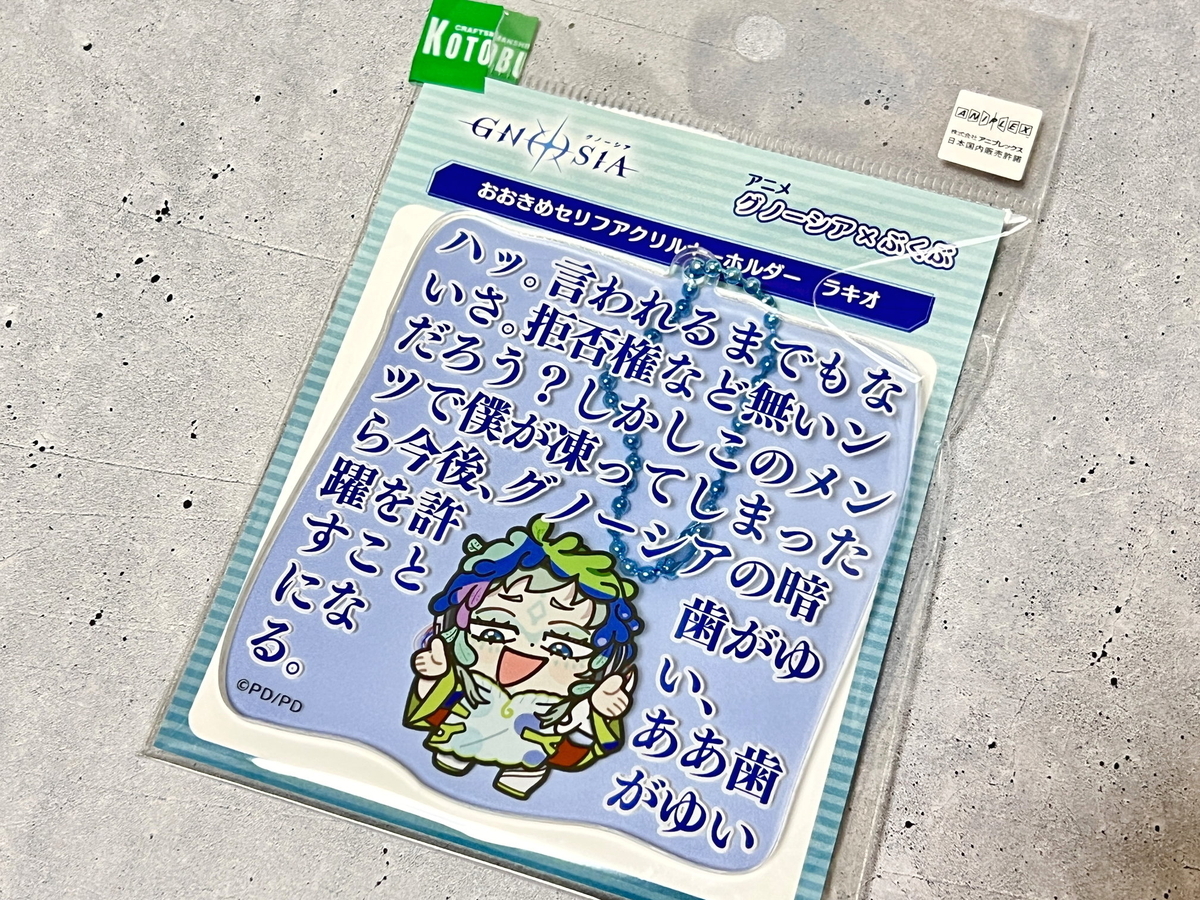 KOTOBU
ANIPLEX
株式会社アニプレックス
日本国内販売許諾
GNOSIA
グノーシア
アニメ
グノーシア×ぷくぷ
おおきめセリフアクリルキーホルダー ラキオ
ハッ。言われるまでもな
いさ。拒否権など無いン
だろう?しかしこのメン
ツで僕が凍ってしまった
ら今後、グノーシアの暗
躍を許
すこと
にな
る。
歯がゆ
い、ああ歯
がゆい
©PD/PD